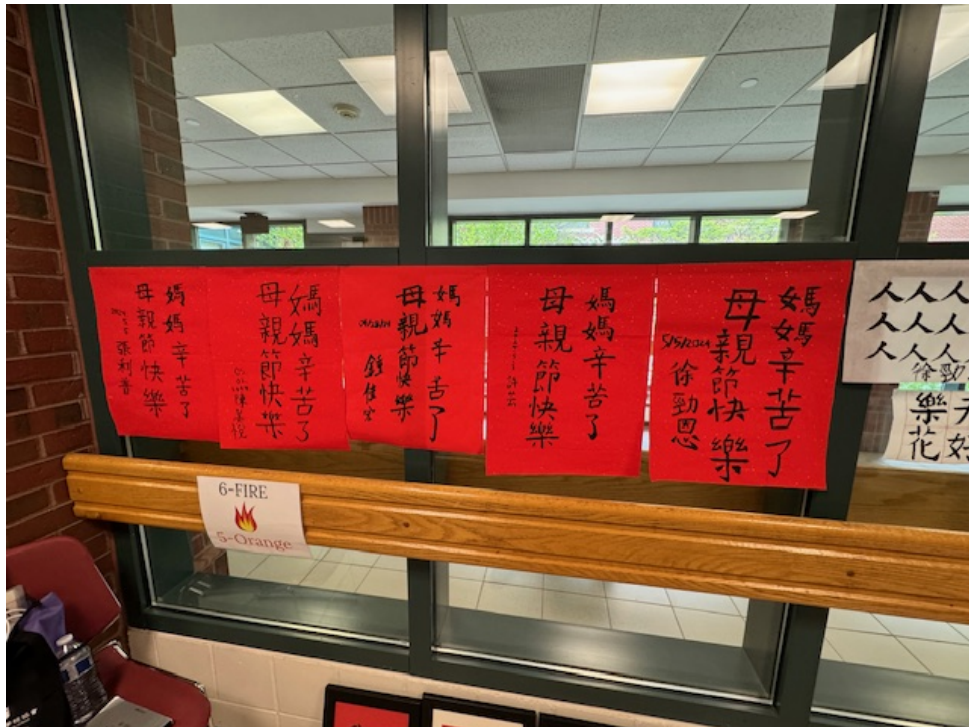 媽媽辛苦了
母親節快樂
媽媽辛苦了
母親節快樂
媽媽辛苦了
母親節快樂
媽媽辛苦了
母親節快樂
媽媽辛苦了
母親節快樂
5/5/2024
徐勁恩
人人人
人人人
人人人
徐勁
好
樂花
6-FIRE
5-Orange